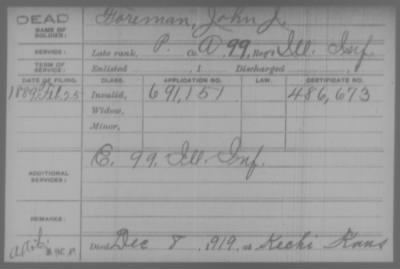 DEAD
NAME OF SOLDIER: Foreman, John J.
SERVICE: Late rank, P. Co. D, 99, Reg't Ill. Inf.
TERM OF SERVICE: Enlisted , 1 Discharged , 1
DATE OF FILING. CLASS. APPLICATION NO. LAW. CERTIFICATE NO.
1889, Feb. 25 Invalid, 691,151 486,673
Widow,
Minor,
ADDITIONAL SERVICES: E. 99. Ill. Inf.
REMARKS:
Died Dec 8, 1919, at Kechi Kans